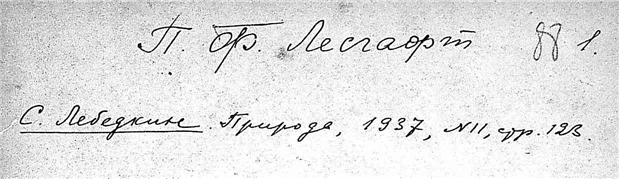 П. Ф. Лесгафт 88 1.
С. Лебедкин. Природа, 1937, N11, стр. 123.